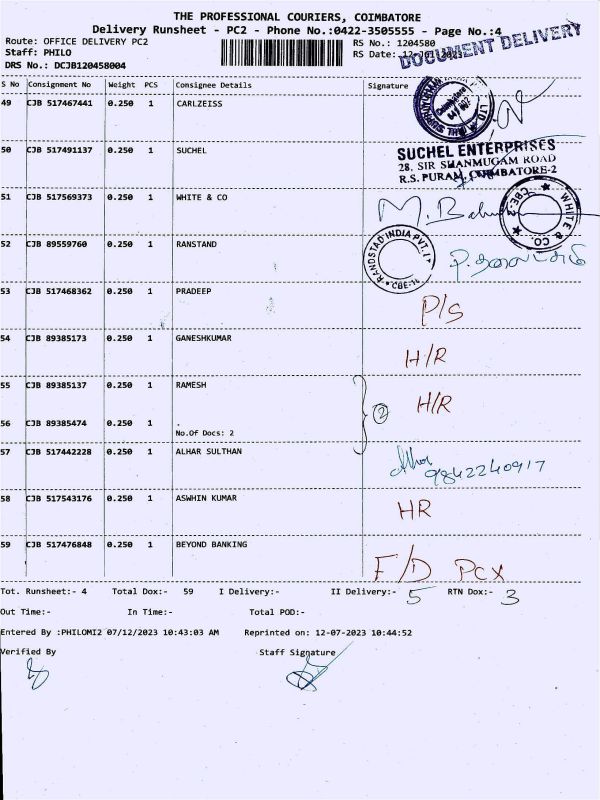 THE PROFESSIONAL COURIERS, COIMBATORE
Delivery Runsheet - PC2 - Phone No.:0422-3505555 - Page No.:4
Route: OFFICE DELIVERY PC2 RS No.: 1204580
Staff: PHILO RS Date:
DRS No.: DCJB120458004
DOCUMENT DELIVERY
S No Consignment No Weight PCS Consignee Details Signature
49 CJB 517467441 0.250 1 CARLZEISS
50 CJB 517491137 0.250 1 SUCHEL
SUCHEL ENTERPRISES
28, SIR SHANMUGAM ROAD
R.S. PURAM, COIMBATORE-2
51 CJB 517569373 0.250 1 WHITE & CO
WHITE & CO. CBE-2
52 CJB 89559760 0.250 1 RANSTAND
RANDSTAD INDIA PVT. CBE-14
53 CJB 517468362 0.250 1 PRADEEP P/S
54 CJB 89385173 0.250 1 GANESHKUMAR H/R
55 CJB 89385137 0.250 1 RAMESH H/R
2
56 CJB 89385474 0.250 1 .
No.Of Docs: 2
57 CJB 517442228 0.250 1 ALHAR SULTHAN
9842240917
58 CJB 517543176 0.250 1 ASWHIN KUMAR HR
59 CJB 517476848 0.250 1 BEYOND BANKING F/D PCX
Tot. Runsheet:- 4 Total Dox:- 59 I Delivery:- II Delivery:- 5 RTN Dox:- 3
Out Time:- In Time:- Total POD:-
Entered By :PHILOMI2 07/12/2023 10:43:03 AM Reprinted on: 12-07-2023 10:44:52
Verified By Staff Signature